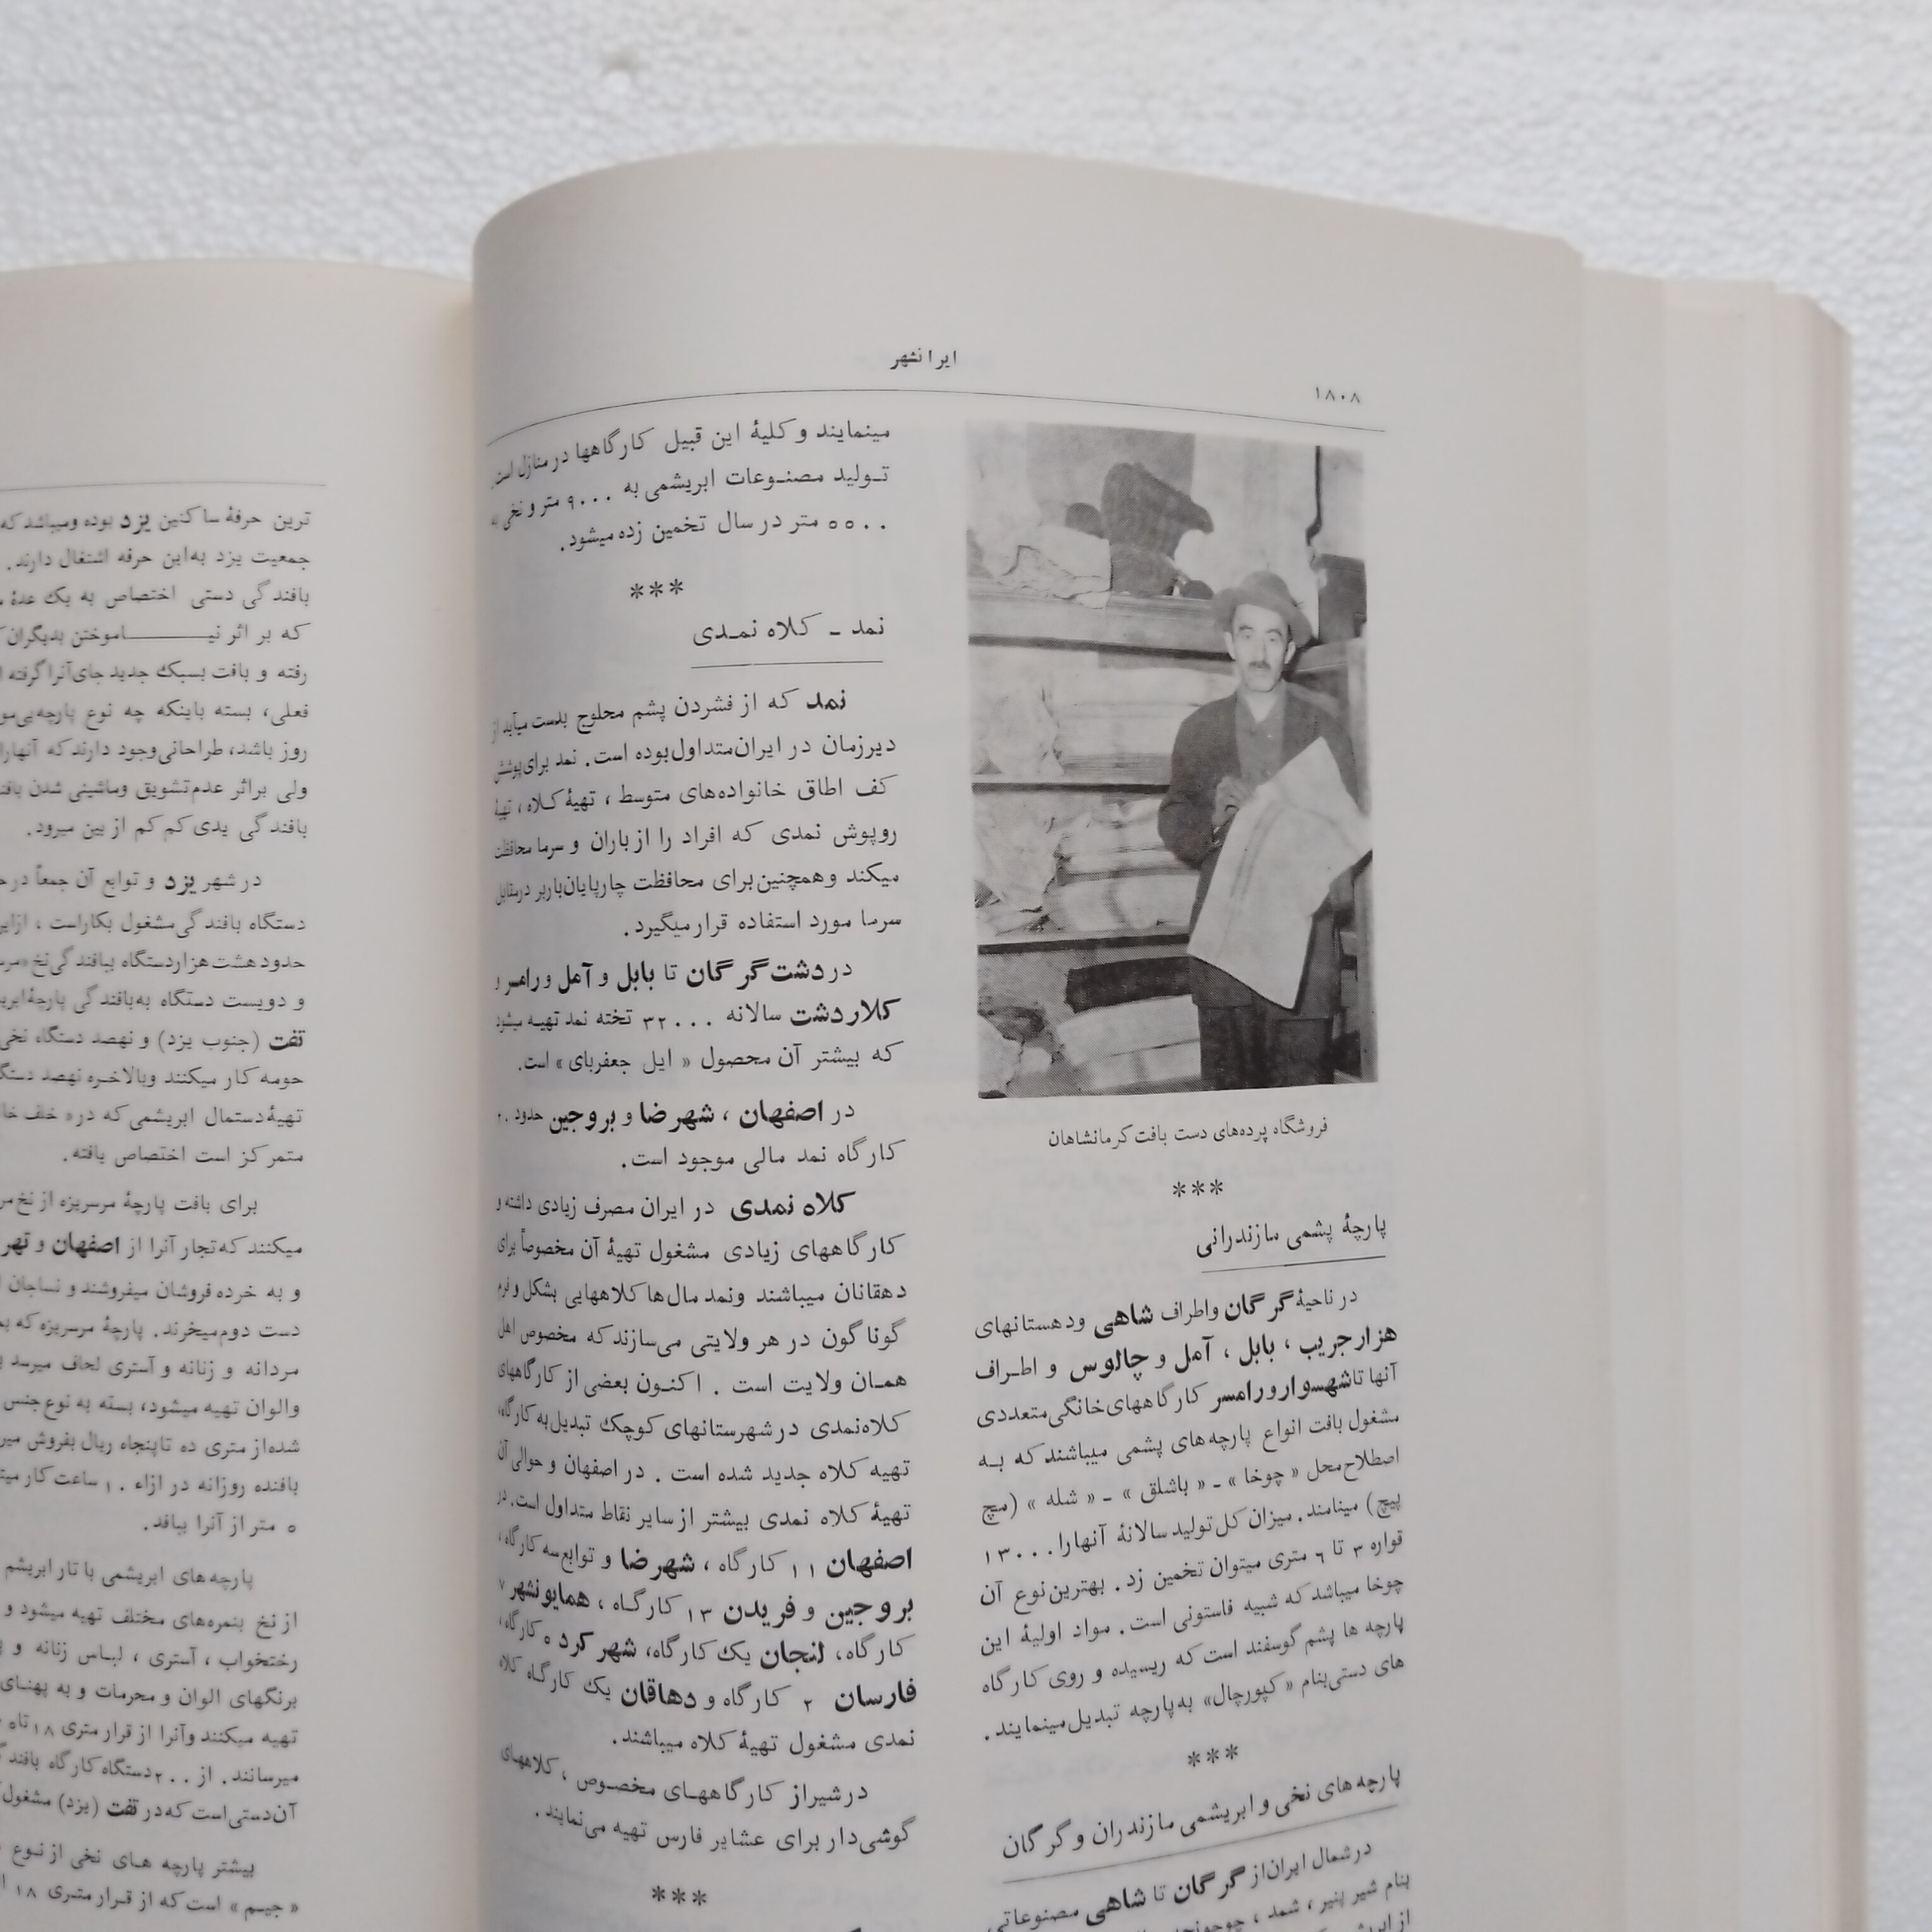 ایرانشهر
۱۸۰۸
فروشگاه پرده‌های دست بافت کرمانشاهان
***
پارچهٔ پشمی مازندرانی
در ناحیهٔ گرگان واطراف شاهی ودهستانهای
هزارجریب ، بابل ، آمل و چالوس و اطراف
آنها تا شهسوار ورامسر کارگاههای خانگی متعددی
مشغول بافت انواع پارچه‌های پشمی میباشند که به
اصطلاح محل « چوخا » ـ « باشلق » ـ « شله » (مچ
پیچ) مینامند. میزان کل تولید سالانهٔ آنها را ۱۳۰۰۰
قواره ۳ تا ۶ متری میتوان تخمین زد . بهترین نوع آن
چوخا میباشد که شبیه فاستونی است. مواد اولیهٔ این
پارچه ها پشم گوسفند است که ریسیده و روی کارگاه
های دستی بنام « کپورچال» به پارچه تبدیل مینمایند .
***
پارچه‌های نخی و ابریشمی مازندران و گرگان
در شمال ایران از گرگان تا شاهی مصنوعاتی
بنام شیر پنیر ، شمد ،
مینمایند و کلیهٔ این قبیل کارگاهها در منازل است.
تولید مصنوعات ابریشمی به ۹۰۰۰ متر و نخی به
۵۵۰۰ متر در سال تخمین زده میشود.
***
نمد ـ کلاه نمدی
نمد که از فشردن پشم محلوج بدست میآید از
دیرزمان در ایران متداول بوده است. نمد برای پوشش
کف اطاق خانواده‌های متوسط ، تهیهٔ کلاه ، تهیهٔ
روپوش نمدی که افراد را از باران و سرما محافظت
میکند و همچنین برای محافظت چارپایان باربر درمقابل
سرما مورد استفاده قرار میگیرد.
در دشت گرگان تا بابل و آمل و رامسر و
کلاردشت سالانه ۳۲۰۰۰ تخته نمد تهیه میشود
که بیشتر آن محصول « ایل جعفربای » است.
در اصفهان ، شهرضا و بروجین حدود ۲۰
کارگاه نمد مالی موجود است.
کلاه نمدی در ایران مصرف زیادی داشته و
کارگاههای زیادی مشغول تهیهٔ آن مخصوصاً برای
دهقانان میباشند ونمد مال‌ها کلاههایی بشکل و فرم
گوناگون در هر ولایتی می‌سازند که مخصوص اهل
همان ولایت است . اکنون بعضی از کارگاههای
کلاه‌نمدی در شهرستانهای کوچک تبدیل به کارگاه
تهیه کلاه جدید شده است . در اصفهان و حوالی آن
تهیهٔ کلاه نمدی بیشتر از سایر نقاط متداول است. در
اصفهان ۱۱ کارگاه ، شهرضا و توابع سه کارگاه ،
بروجین و فریدن ۱۳ کارگاه ، همایونشهر ۷
کارگاه، لنجان یک کارگاه، شهرکرد ۵ کارگاه،
فارسان ۲ کارگاه و دهاقان یک کارگاه کلاه
نمدی مشغول تهیهٔ کلاه میباشند.
درشیراز کارگاههای مخصوص ، کلاههای
گوشی‌دار برای عشایر فارس تهیه می‌نمایند.
***
ترین حرفهٔ ساکنین یزد بوده ومیباشد که
جمعیت یزد به‌این حرفه اشتغال دارند.
بافندگی دستی اختصاص به یک عدهٔ
که بر اثر نیاموختن بدیگران
رفته و بافت بسبک جدید جای آنرا گرفته
فعلی، بسته باینکه چه نوع
روز باشد، طراحانی وجود دارند که آنهارا
ولی براثر عدم تشویق وماشینی شدن
بافندگی یدی کم کم از بین میرود.
در شهر یزد و توابع آن جمعاً در
دستگاه بافندگی مشغول بکاراست ،
حدود هشت هزار دستگاه ببافندگی نخ
و دویست دستگاه به‌بافندگی
تفت (جنوب یزد) و نهصد دستگاه نخی
حومه کار میکنند وبالاخره نهصد
تهیهٔ دستمال ابریشمی که در « خلف
متمرکز است اختصاص یافته.
برای بافت پارچهٔ مرسریزه از
میکنند که تجار آنرا از اصفهان و
و به خرده فروشان میفروشند و نساجان
دست دوم میخرند. پارچهٔ مرسریزه که
مردانه و زنانه و آستری لحاف میرسد
والوان تهیه میشود، بسته به نوع جنس
شده از متری ده تا پنجاه ریال بفروش
بافنده روزانه در ازاء ۱۰ ساعت کار
۵ متر از آنرا ببافد.
پارچه‌های ابریشمی با تار ابریشم
از نخ بنمره‌های مختلف تهیه میشود و
رختخواب ، آستری ، لباس زنانه و
برنگهای الوان و محرمات و به پهنای
تهیه میکنند وآنرا از قرار متری ۱۸ تا
میرسانند. از ۲۰۰ دستگاه کارگاه
آن دستی است که در تفت (یزد) مشغول
بیشتر پارچه های نخی از نوع
« جیم » است که از قرار متری ۱۸